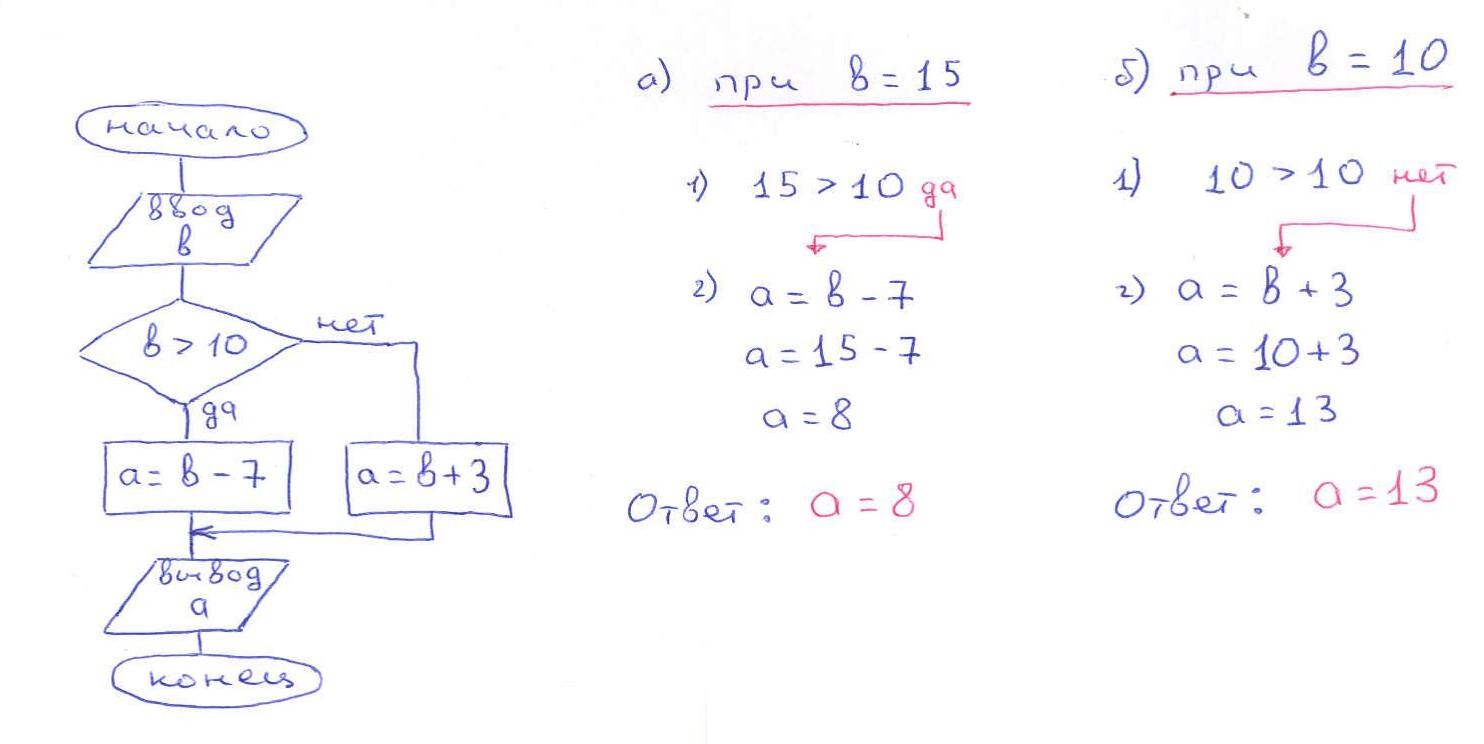 начало
ввод
в
в > 10
нет
да
a = в - 7
a = в + 3
вывод
a
конец
а) при в = 15
1) 15 > 10 да
2) a = в - 7
a = 15 - 7
a = 8
Ответ: a = 8
б) при в = 10
1) 10 > 10 нет
2) a = в + 3
a = 10 + 3
a = 13
Ответ: a = 13